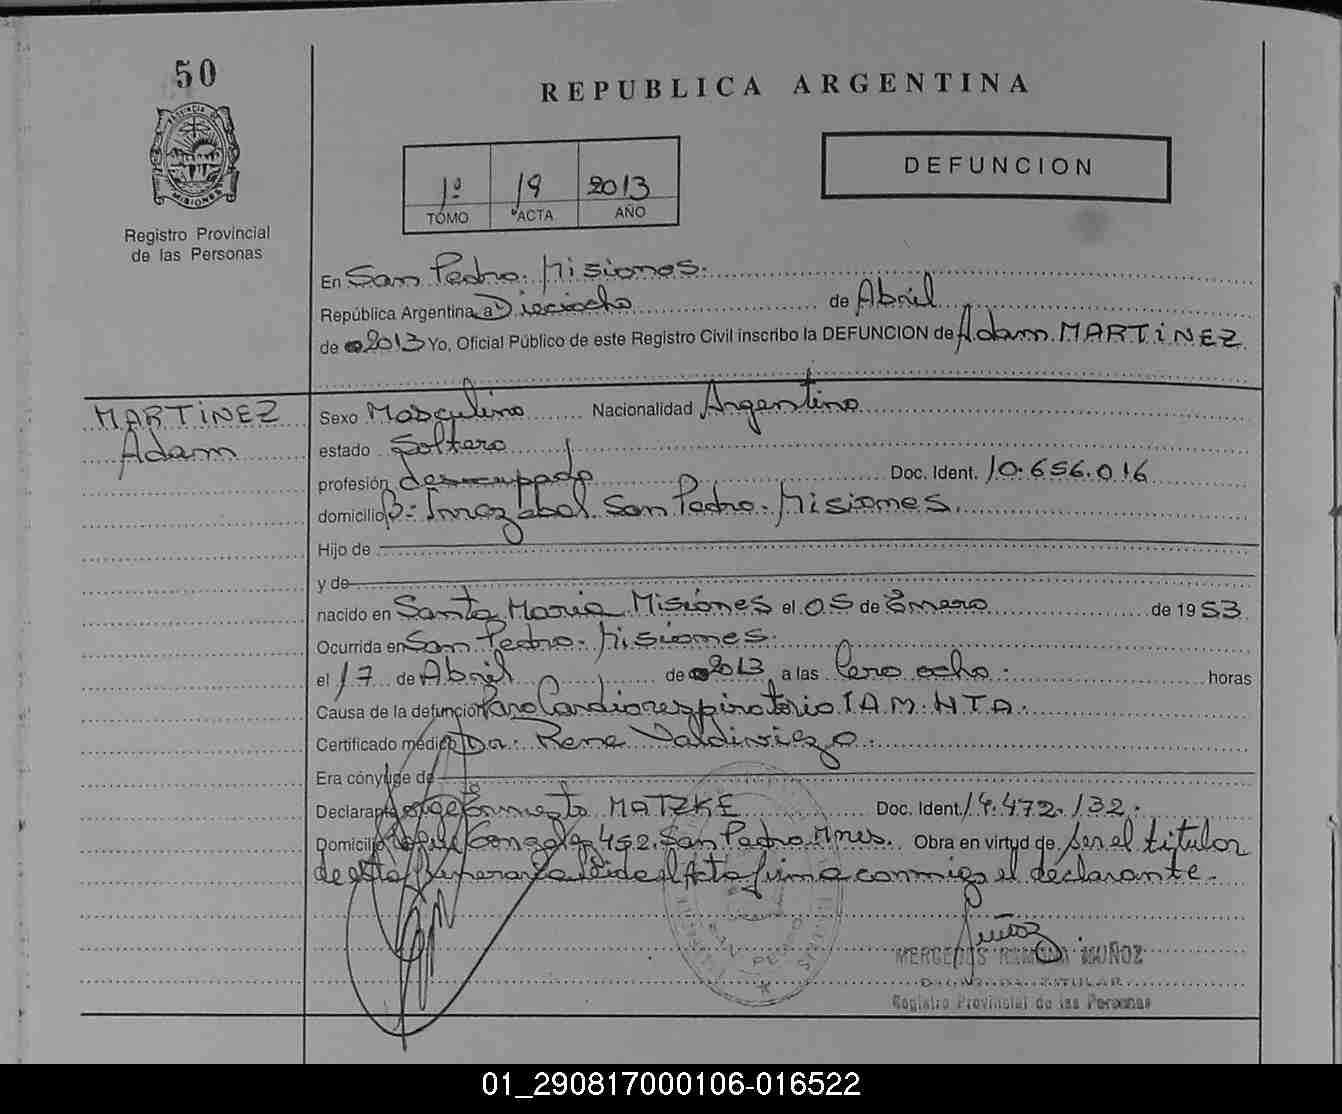 50
REPUBLICA ARGENTINA
PROVINCIA DE
MISIONES
Registro Provincial
de las Personas
1º 19 2013
TOMO ACTA AÑO
DEFUNCION
En San Pedro. Misiones.
República Argentina, a Dieciocho de Abril
de 2013 Yo, Oficial Público de este Registro Civil inscribo la DEFUNCION de Adam MARTiNEZ
MARTiNEZ
Adam
Sexo Masculino Nacionalidad Argentino
estado Soltero
profesión desocupado Doc. Ident. 10.656.016
domicilio B: Irrazabal. San Pedro. Misiones.
Hijo de
y de
nacido en Santa Maria Misiones el 05 de Enero de 1953
Ocurrida en San Pedro. Misiones.
el 17 de Abril de 2013 a las Cero ocho. horas
Causa de la defunción Paro Cardiorespiratorio IAM. HTA.
Certificado médico Dr. Rene Valdiviezo.
Era cónyuge de
Declarante MATZKE Doc. Ident. 14.472.132.
Domicilio Gonzalez 452. San Pedro Mnes. Obra en virtud de ser el titular
de esta Funeraria Leida el Acta firma conmigo el declarante.
Muñoz
MERCEDES RAMONA MUÑOZ
TITULAR
Registro Provincial de las Personas
01_290817000106-016522